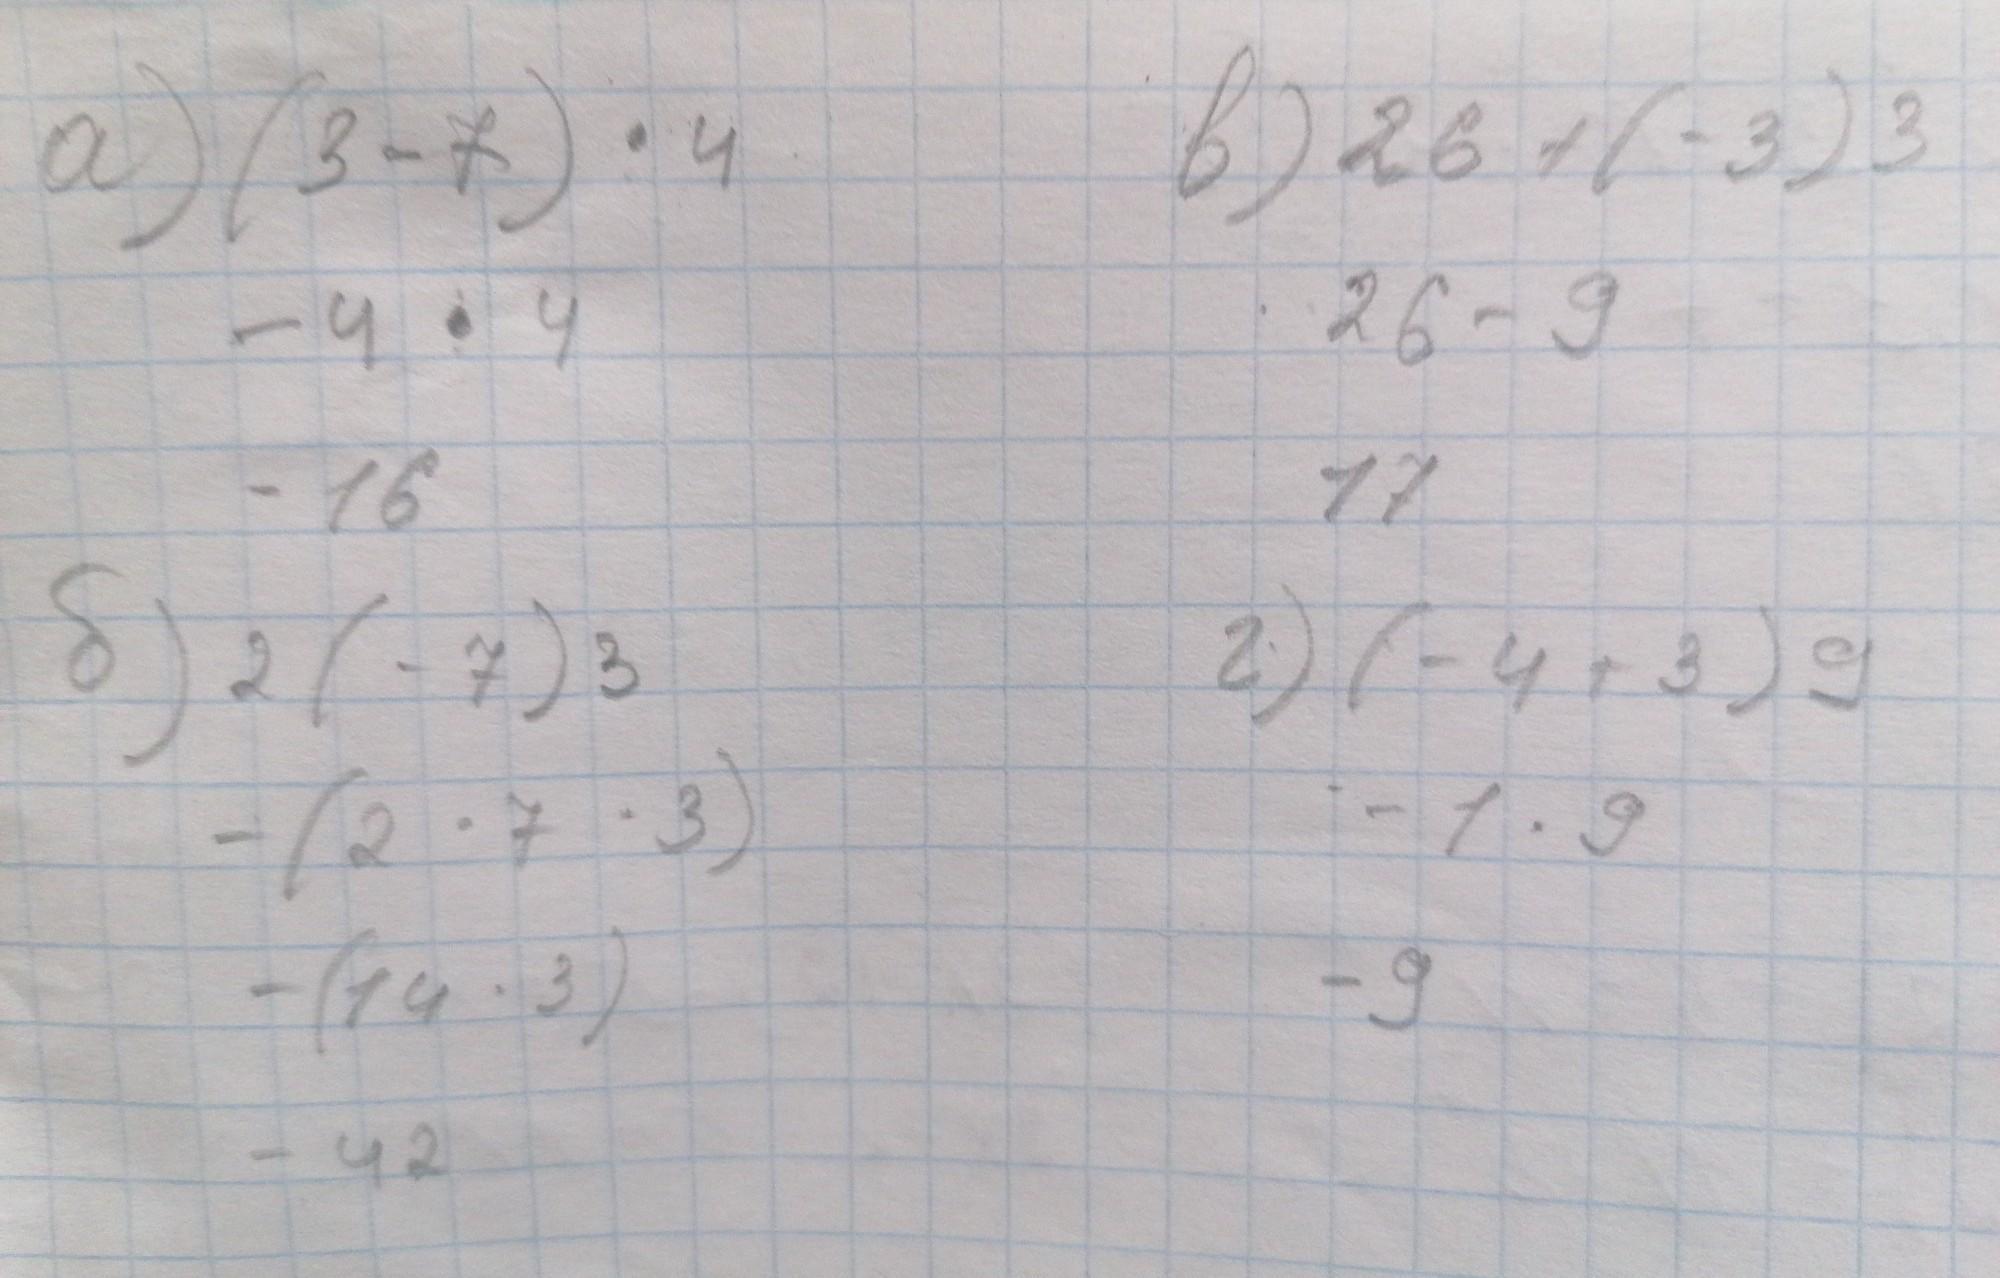 а) (3-7) · 4
-4 · 4
-16
б) 2(-7)3
-(2 · 7 · 3)
-(14 · 3)
-42
в) 26+(-3)3
26-9
17
г) (-4+3)9
-1 · 9
-9